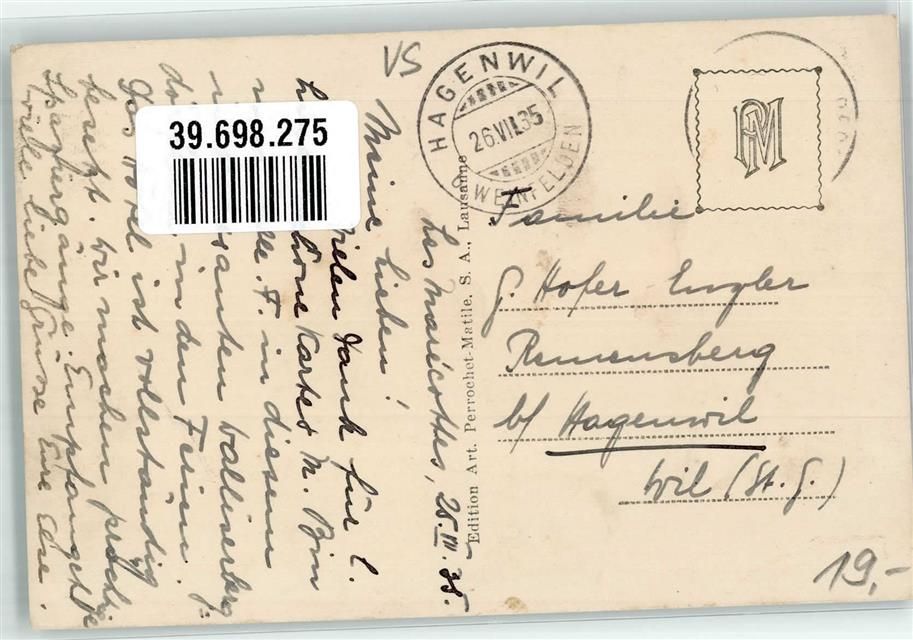 VS
HAGENWIL
26.VII.35
WEINFELDEN
PM
39.698.275
Les Marécottes, 25. VII. 35.
Meine Lieben!
Vielen Dank für l.
Karte. Bin
F. in diesem
Walliserberg
in den Ferien.
Das Hotel ist vollständig
besetzt. Wir machen prächtige
Spaziergänge. Empfanget
viele liebe Grüsse
Edition Art. Perrochet-Matile, S. A., Lausanne
Familie
J. Hofer Engler
Remensberg
b/ Hagenwil
Wil (St. G.)
19,-